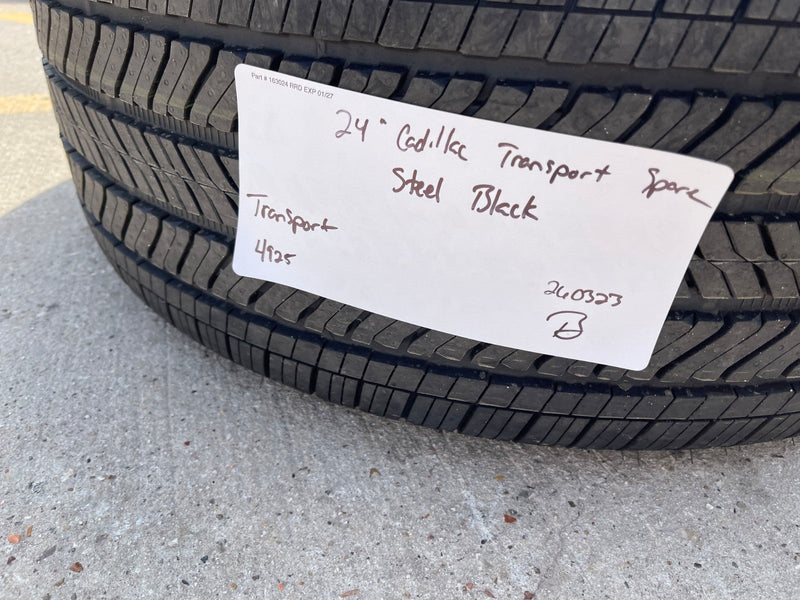 Part # 163024 RRD EXP 01/27
24" Cadillac Transport Spare
Steel Black
Transport
4925
260323
B